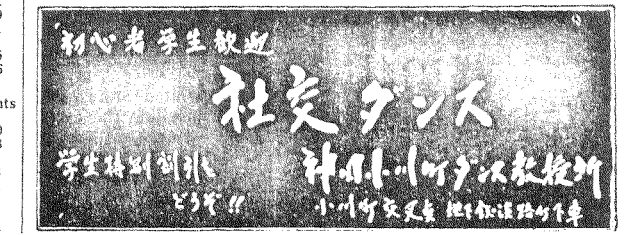 初心者学生歓迎
社交ダンス
学生特別割引も
どうぞ!!
神田小川町ダンス教授所
小川町交叉点 地下鉄淡路町下車
nts